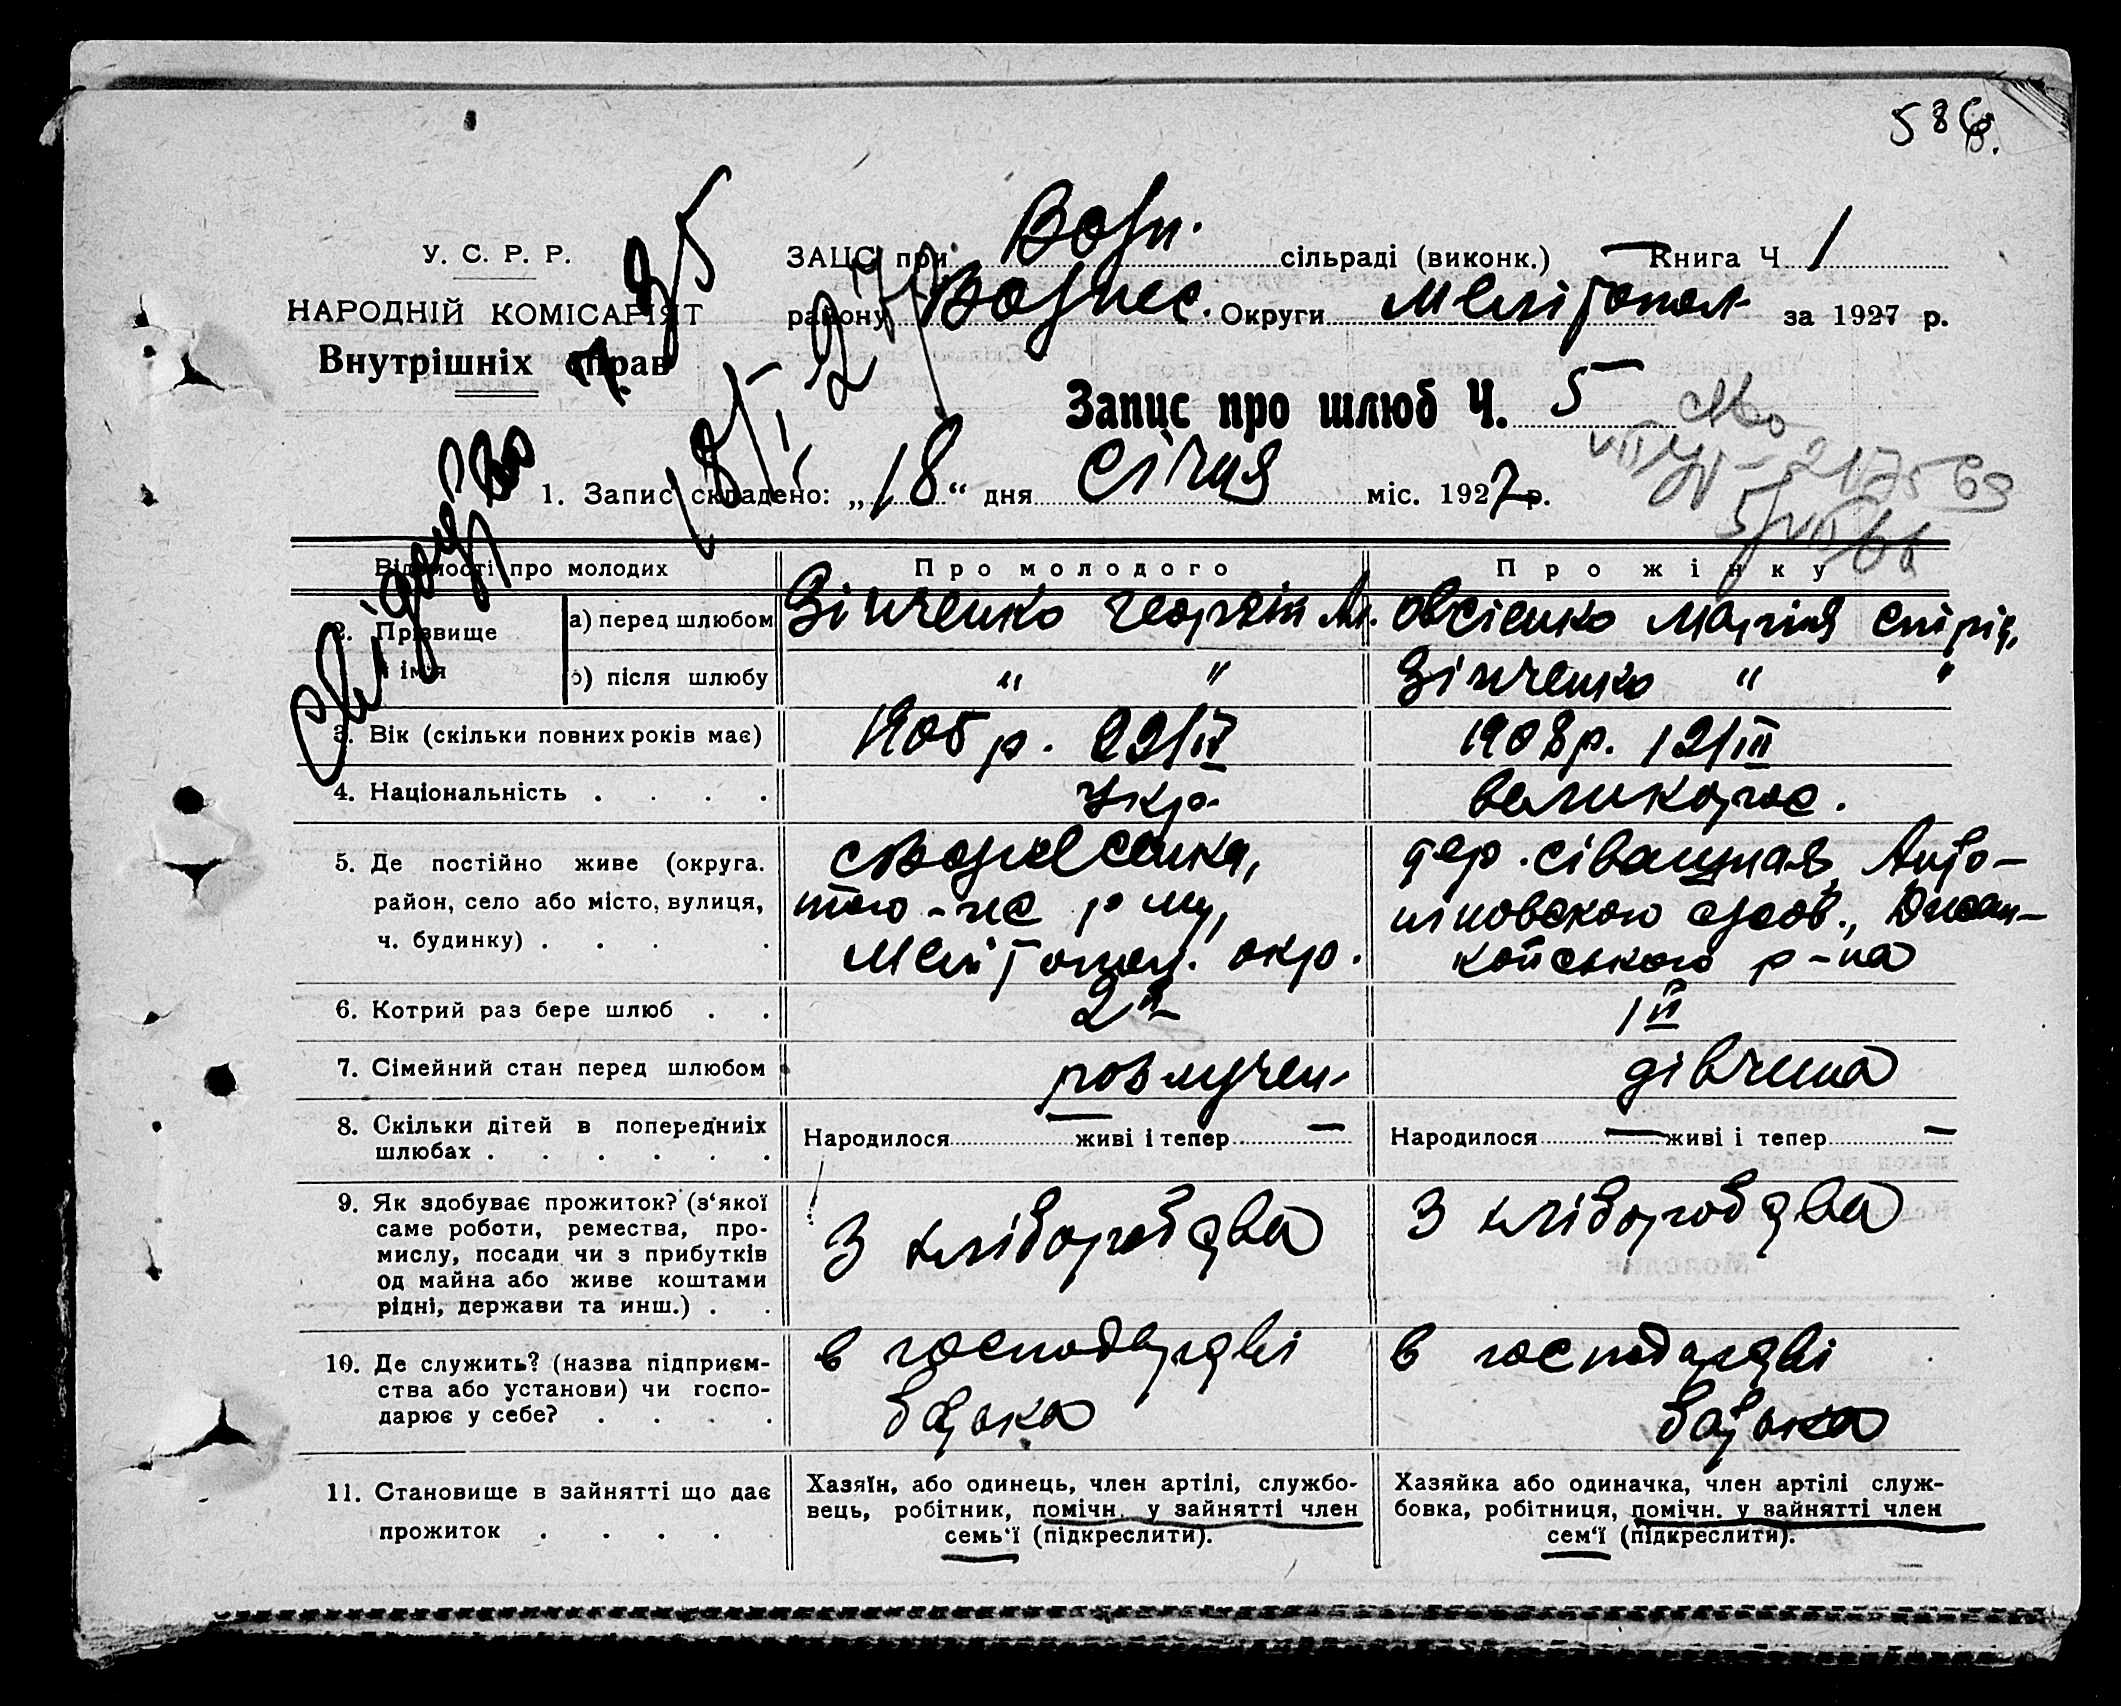 586
У. С. Р. Р.
НАРОДНІЙ КОМІСАРІЯТ
Внутрішніх справ
ЗАЦС при Возн. сільраді (виконк.) Книга Ч 1
району Вознес. Округи Мелітопол за 1927 р.
Запис про шлюб Ч. 5
1. Запис складено: „18“ дня Січня міс. 1927 р.
Свідоцтво
Відомості про молодих
Про молодого
Про жінку
2. Прізвище і імя
а) перед шлюбом
Зінченко Георгій М.
Овсієнко Марія Спірід.
б) після шлюбу
" "
Зінченко " "
3. Вік (скільки повних років має)
1905 р. 22/IV
1908 р. 12/III
4. Національність . . . .
Укр.
великорос.
5. Де постійно живе (округа.
район, село або місто, вулиця,
ч. будинку) . . . .
с Вознесенка,
того-же р-ну,
Мелітопол. окр.
дер. Сіващная, Анто-
новского сзсов., Джан-
койського р-на
6. Котрий раз бере шлюб . .
2й
1й
7. Сімейний стан перед шлюбом
розлучен.
дівчина
8. Скільки дітей в попередниіх
шлюбах . . . . . .
Народилося — живі і тепер —
Народилося — живі і тепер —
9. Як здобуває прожиток? (з‘якої
саме роботи, ремества, про-
мислу, посади чи з прибутків
од майна або живе коштами
рідні, держави та инш.) . .
З хліборобства
З хліборобства
10. Де служить? (назва підприєм-
ства або установи) чи госпо-
дарює у себе? . . . .
в господарстві
батька
в господарстві
батька
11. Становище в зайнятті що дає
прожиток . . . .
Хазяїн, або одинець, член артілі, службо-
вець, робітник, помічн. у зайнятті член
семь‘ї (підкреслити).
Хазяйка або одиначка, член артілі служ-
бовка, робітниця, помічн. у зайнятті член
сем‘ї (підкреслити).